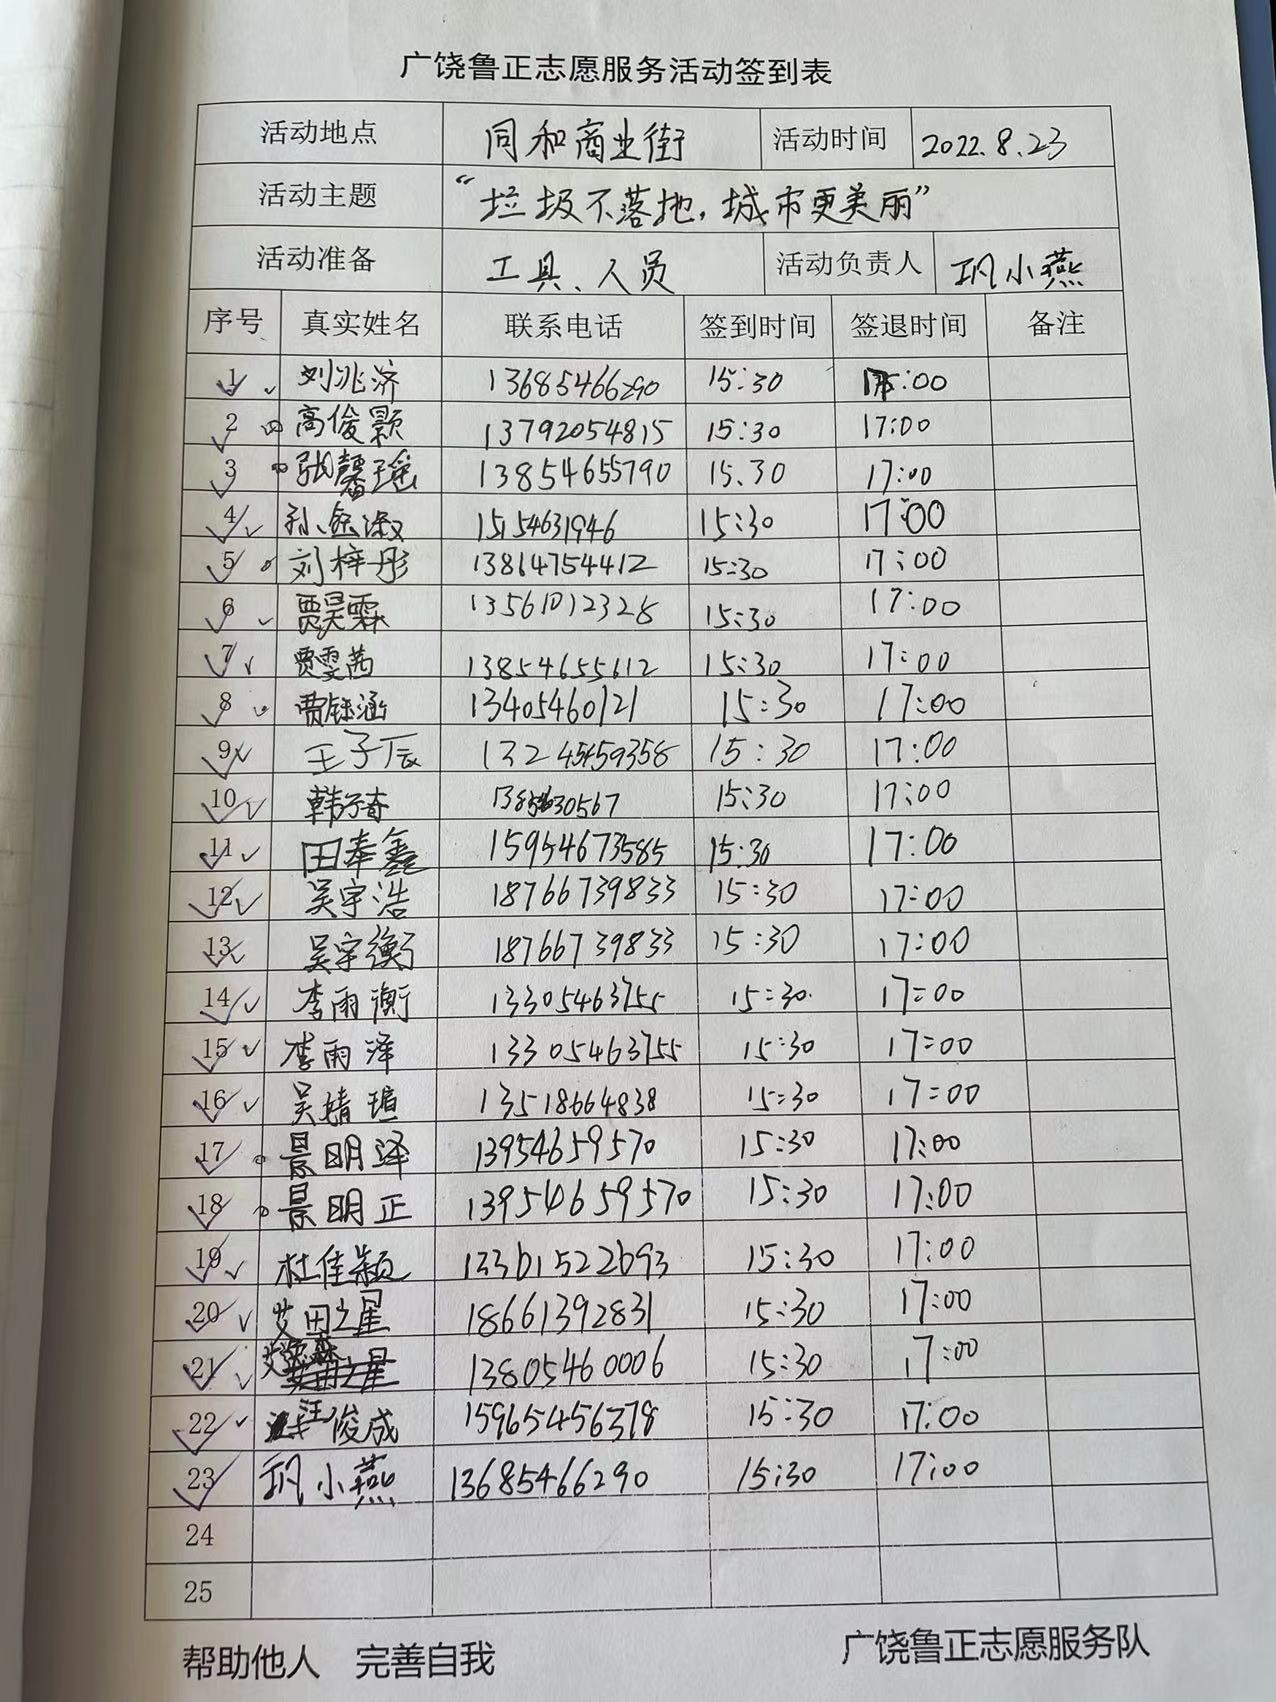 广饶鲁正志愿服务活动签到表
活动地点 同和商业街 活动时间 2022.8.23
活动主题 “垃圾不落地，城市更美丽”
活动准备 工具、人员 活动负责人 巩小燕
序号 真实姓名 联系电话 签到时间 签退时间 备注
1 刘兆济 13685466290 15:30 17:00
2 高俊颢 13792054815 15:30 17:00
3 张馨瑶 13854655790 15.30 17:00
4 15154631946 15:30 17:00
5 刘梓彤 13864754412 15:30 17:00
6 贾昊霖 13561012328 15:30 17:00
7 贾雯茜 13854655612 15:30 17:00
8 贾钰涵 13405460121 15:30 17:00
9 王子辰 15:30 17:00
10 韩子奇 15:30 17:00
11 田奉鑫 15954673585 15:30 17:00
12 吴宇浩 18766739833 15:30 17:00
13 吴宇衡 18766739833 15:30 17:00
14 李雨衡 13305463755 15:30 17:00
15 李雨泽 13305463755 15:30 17:00
16 吴婧瑄 13518664838 15:30 17:00
17 景明泽 13954659570 15:30 17:00
18 景明正 13954659570 15:30 17:00
19 杜佳颖 15:30 17:00
20 艾田之星 18661392831 15:30 17:00
21 13805460006 15:30 17:00
22 汪俊成 15965456378 15:30 17:00
23 巩小燕 13685466290 15:30 17:00
24
25
帮助他人 完善自我 广饶鲁正志愿服务队